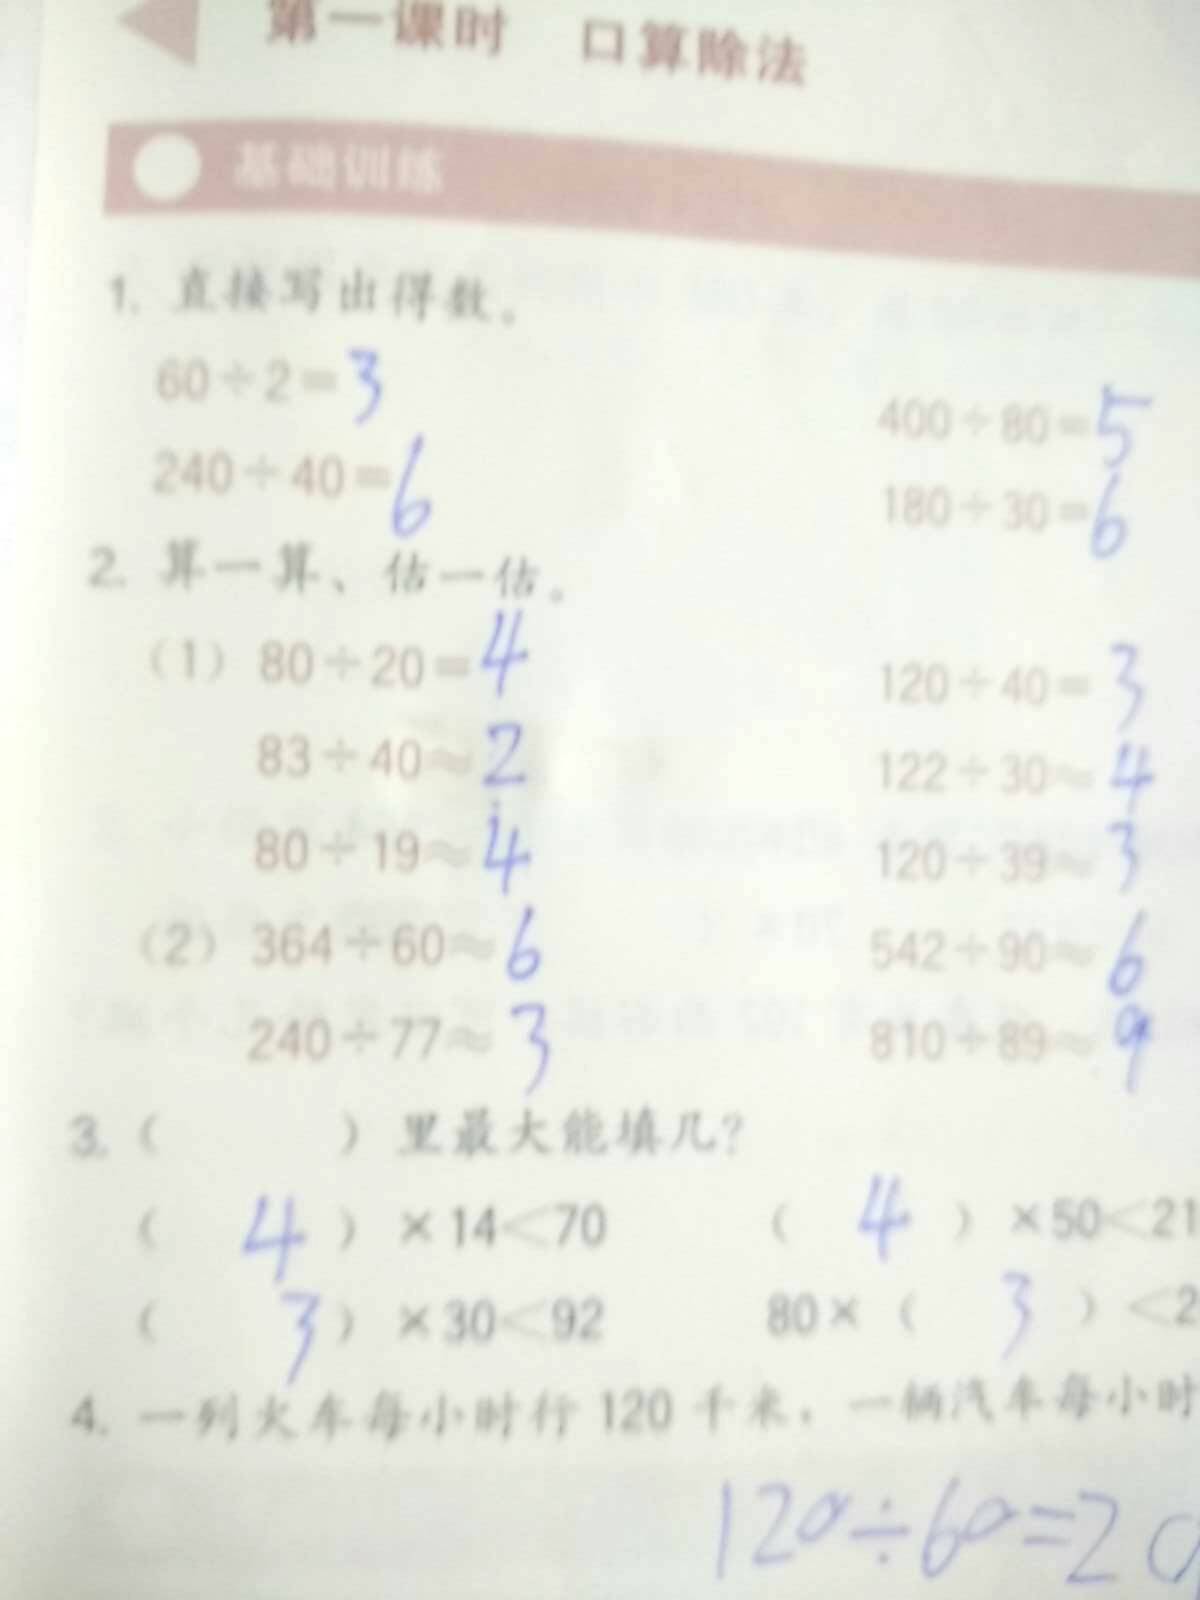 第一课时 口算除法
基础训练
1. 直接写出得数。
60÷2=3 400÷80=5
240÷40=6 180÷30=6
2. 算一算、估一估。
(1) 80÷20=4 120÷40=3
83÷40≈2 122÷30≈4
80÷19≈4 120÷39≈3
(2) 364÷60≈6 542÷90≈6
240÷77≈3 810÷89≈9
3. ( ) 里最大能填几?
( 4 ) ×14<70 ( 4 ) ×50<21
( 3 ) ×30<92 80× ( 3 ) <2
4. 一列火车每小时行 120 千米, 一辆汽车每小时
120÷60=2